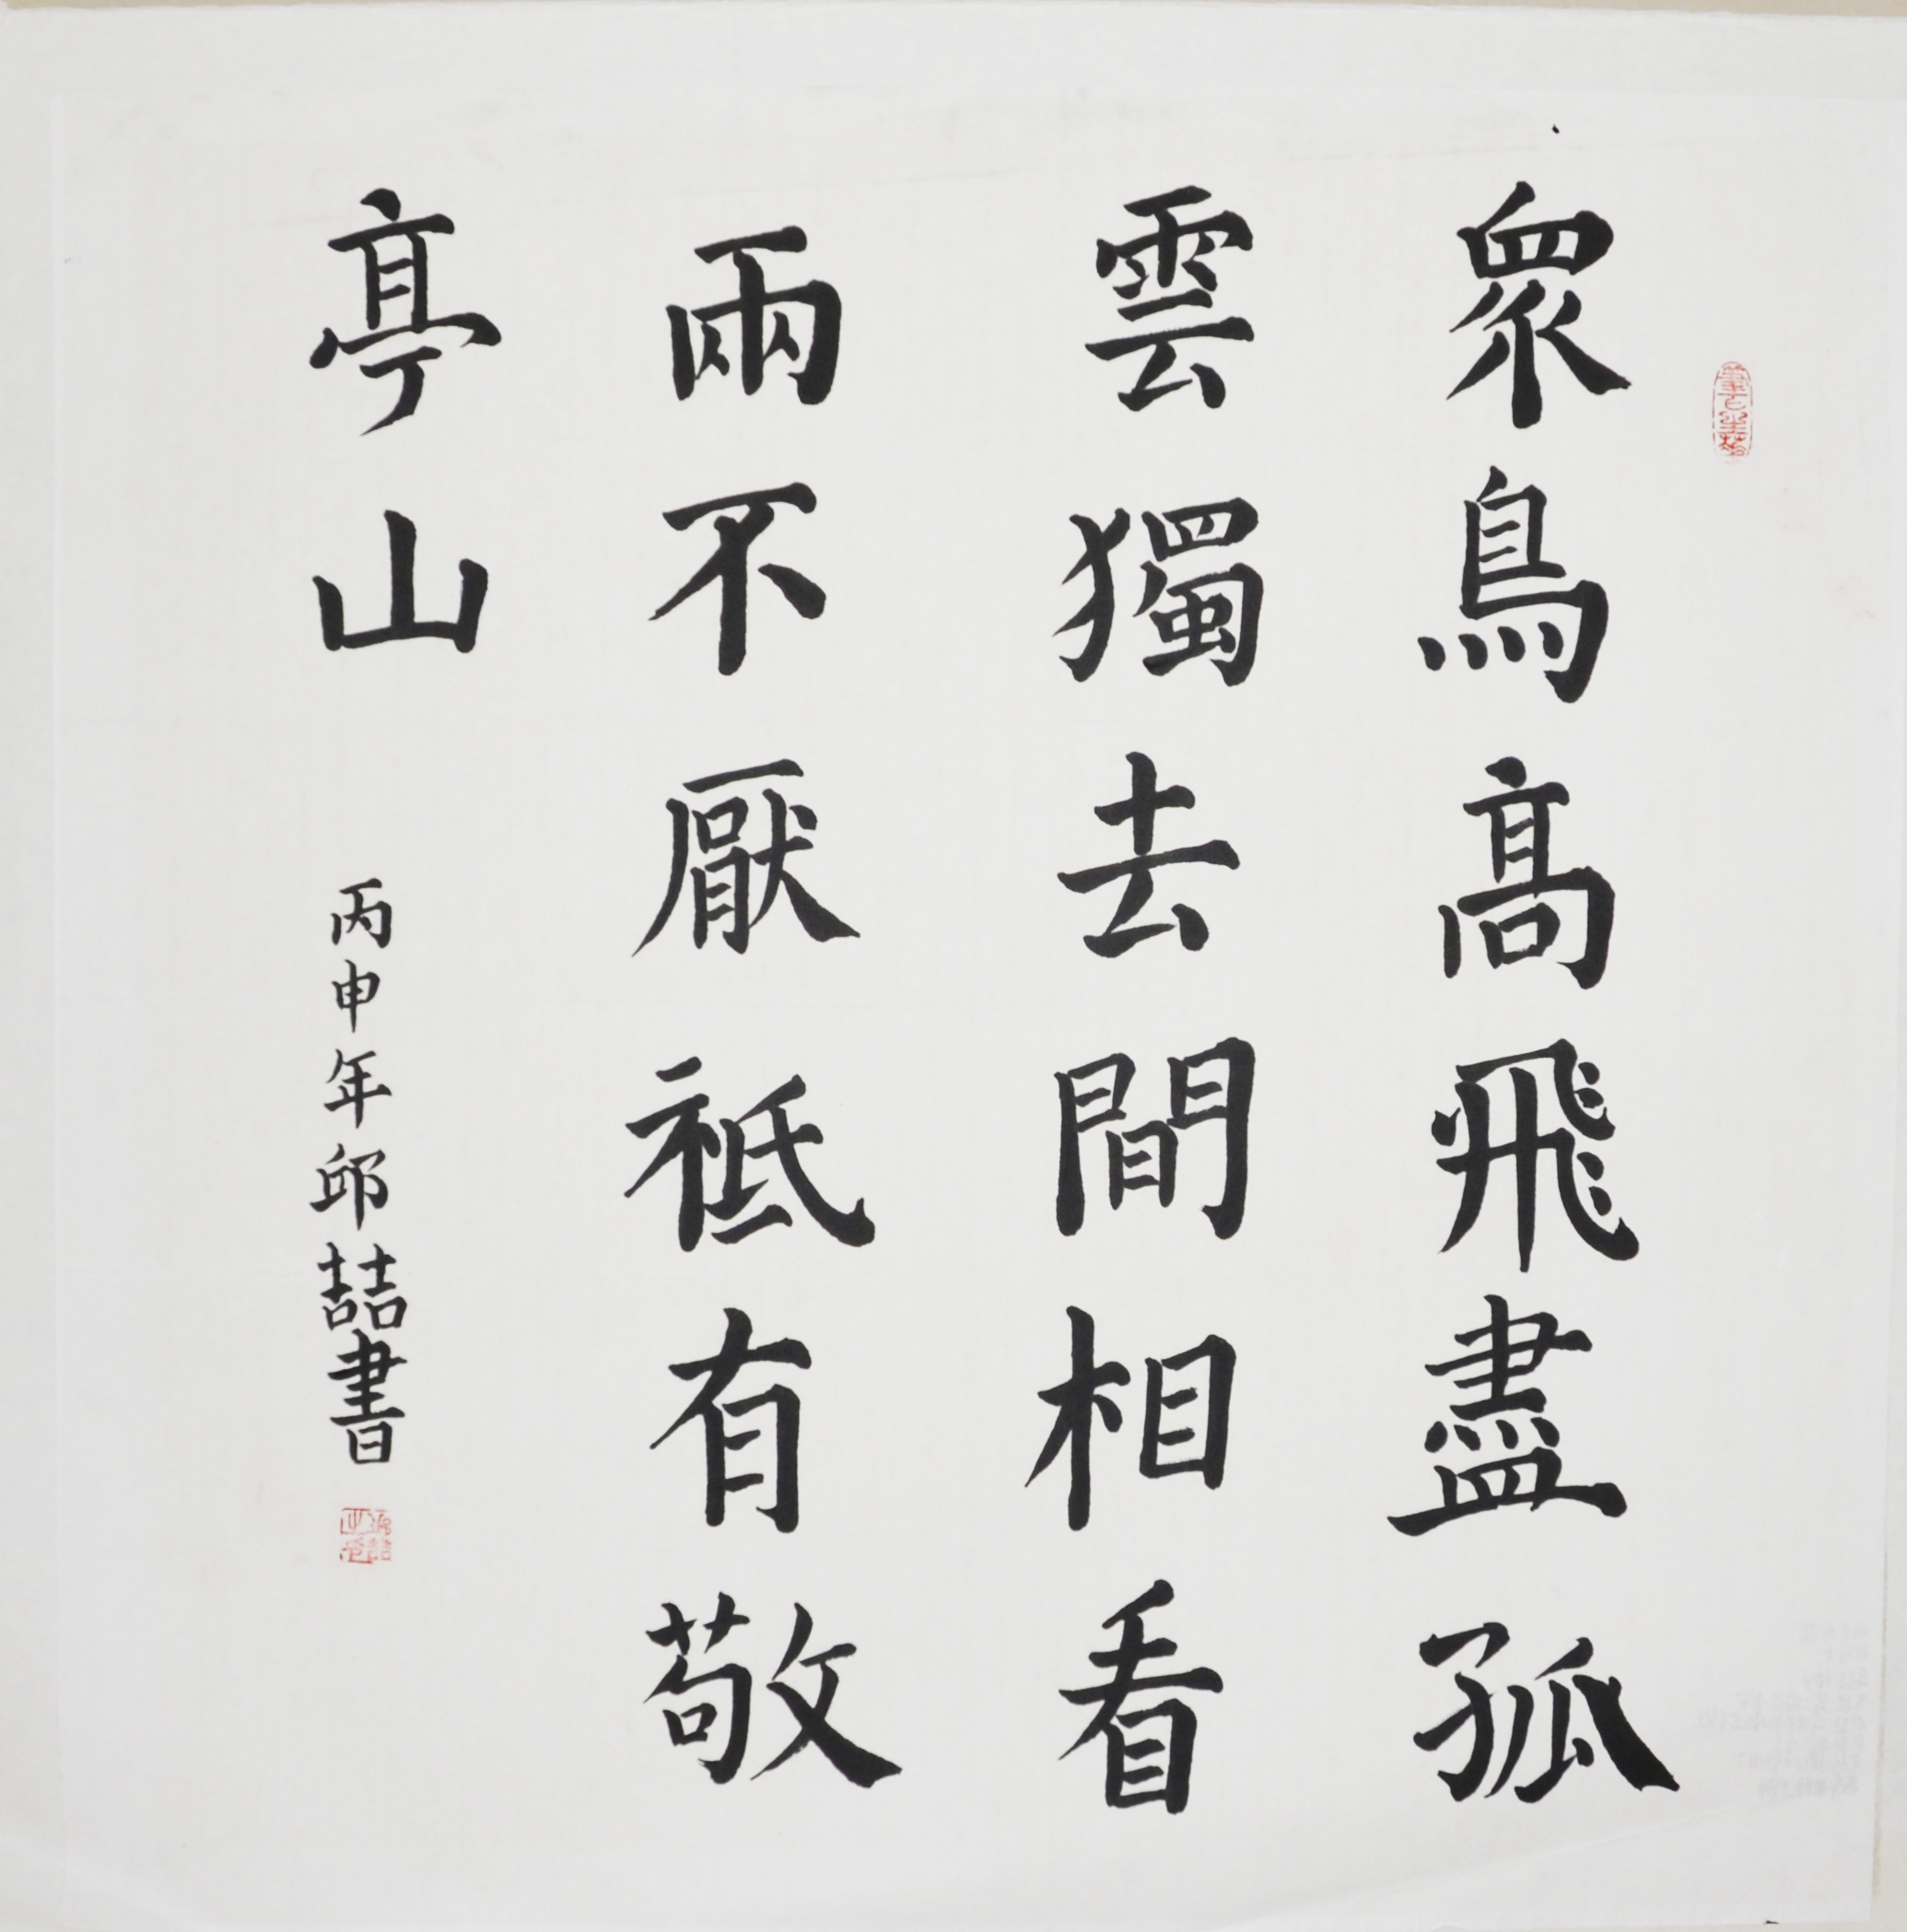 眾鳥高飛盡孤
雲獨去閒相看
兩不厭祗有敬
亭山
丙申年邱喆書